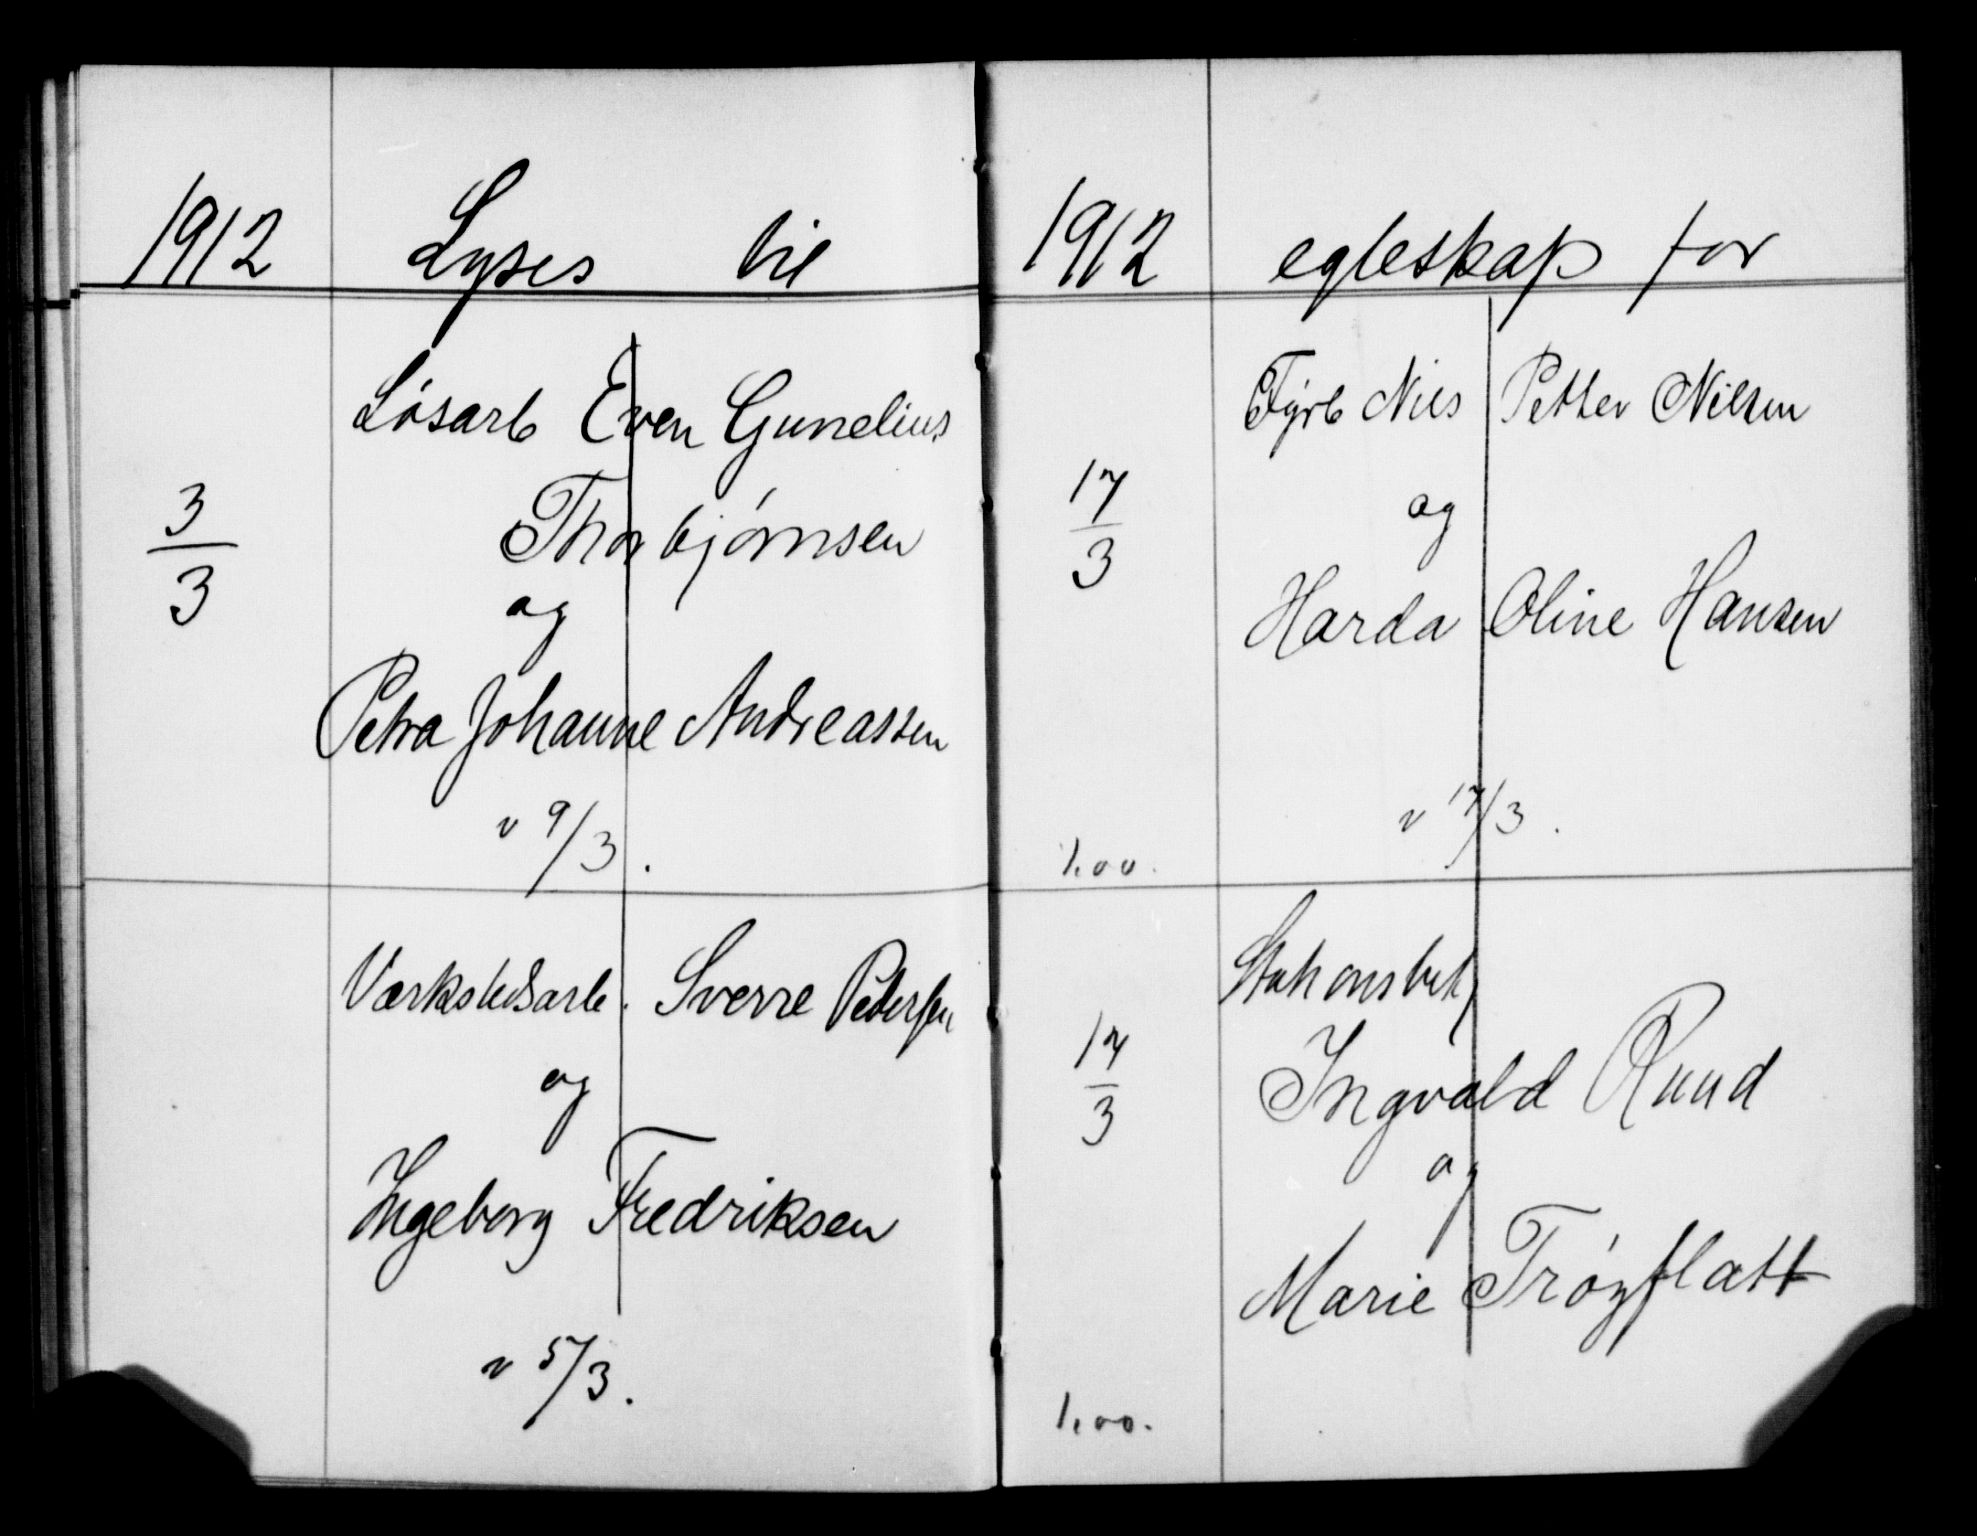 1912 Lyses til
Løsarb Even Gunelius
3/3
Thorbjørnsen
og
Petra Johanne Andreassen
v 9/3.
Værkstedsarb. Sverre Pedersen
og
Ingeborg Fredriksen
v 5/3.
1912 egteskap for
Fyrb Nils Petter Nilsen
17/3
og
Harda Oline Hansen
v 17/3.
1.00.
Stationsbetj
17/3
Ingvald Ruud
og
Marie Trøgflatt
1.00.